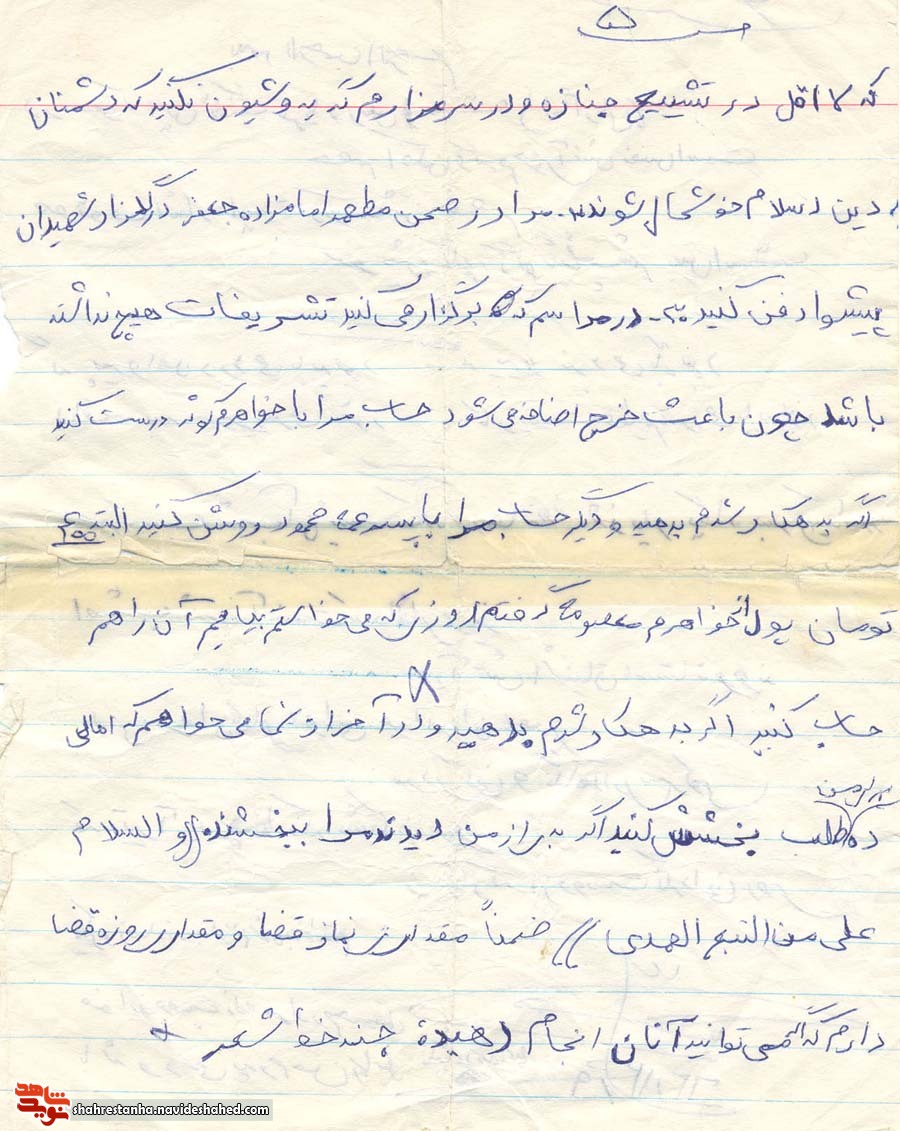 ۵
که لااقل در تشییع جنازه و در سر مزارم گریه و شیون نکنید که دشمنان
دین اسلام خوشحال شوند. مرا در صحن مطهر امامزاده جعفر در گلزار شهیدان
پیشوا دفن کنید ۳- در مراسم که برگزار می کنید تشریفات هیچ نداشته
باشد چون باعث خرج اضافه می شود حساب مرا با خواهرم درست کنید
اگر بدهکار شدم بدهید و دیگر حساب مرا با پسر عمه محمود روشن کنید البته
تومان پول از خواهرم معصومه گرفتم روزی که می خواستم بیایم آن را هم
حساب کنید اگر بدهکار شدم بدهید و در آخر از شما می خواهم که اهالی
ده طلب بخشش کنید اگر بدی از من دیدند مرا ببخشند والسلام
برای من
علی من التبع الهدی // ضمناً مقداری نماز قضا و مقداری روزه قضا
دارم که اگر می توانید آنان انجام دهید چند خط شعر
شاهد
نوید
shahrestanha.navideshahed.com